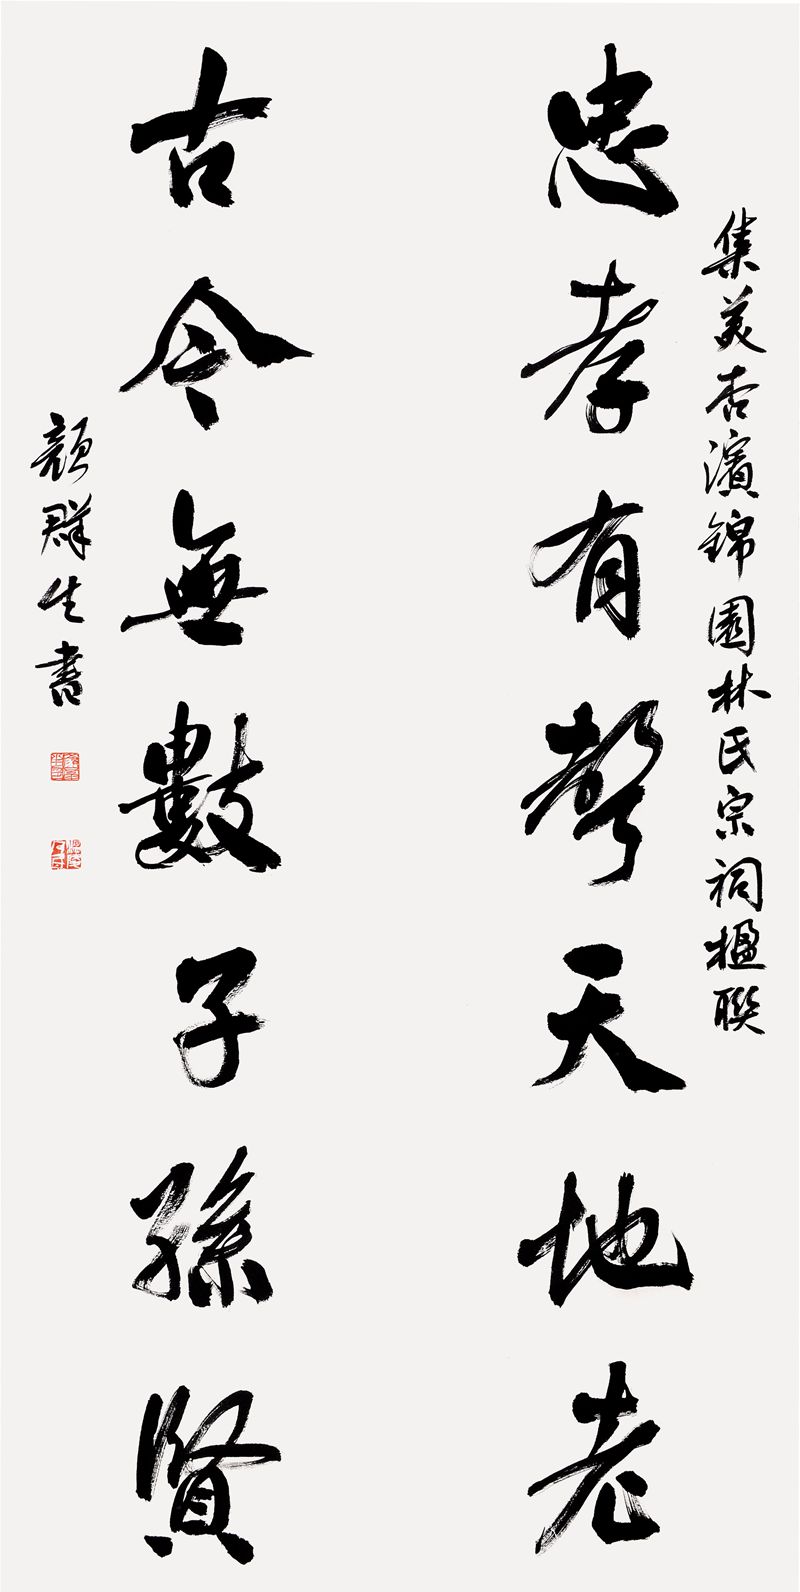 集美杏濱錦園林氏宗祠楹聯
忠孝有聲天地老
古今無數子孫賢
顏群生書